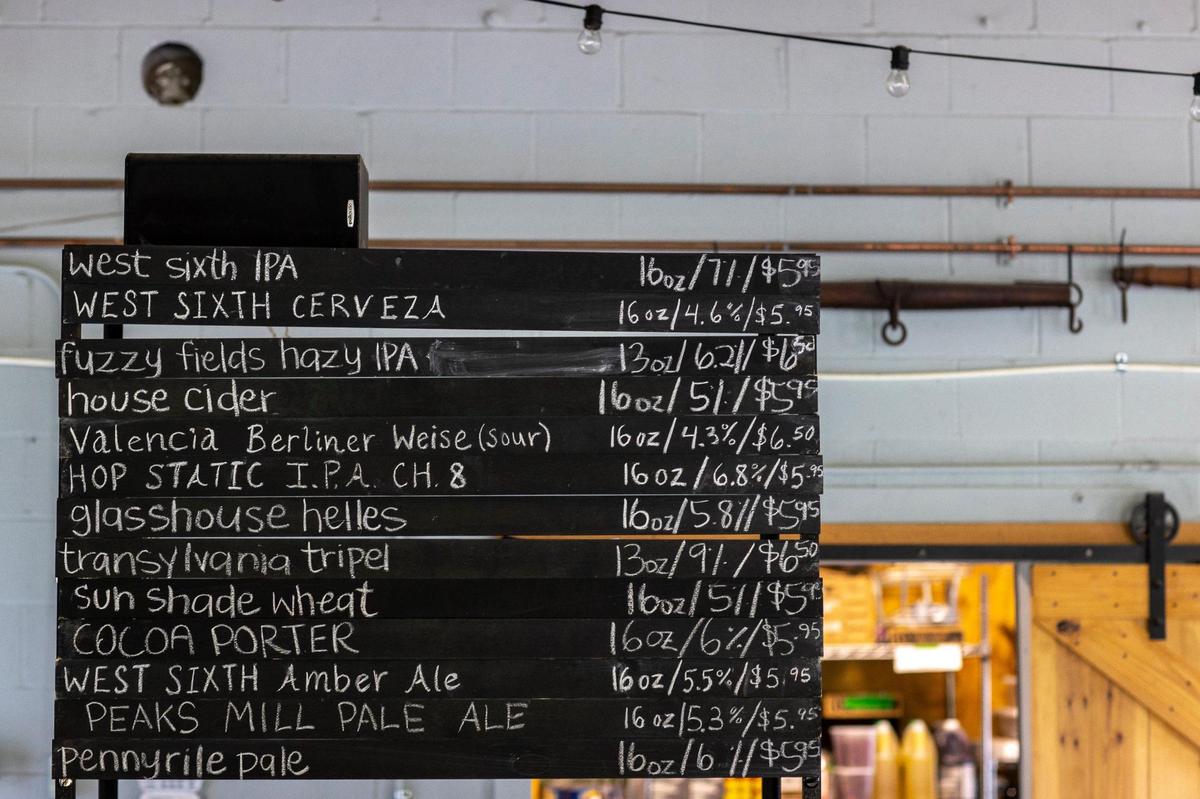 west sixth IPA 16oz/7%/$5.95
WEST SIXTH CERVEZA 16oz/4.6%/$5.95
fuzzy fields hazy IPA 13oz/6.2%/$6.50
house cider 16oz/5%/$5.95
Valencia Berliner Weise (sour) 16oz/4.3%/$6.50
HOP STATIC I.P.A. CH. 8 16oz/6.8%/$5.95
glasshouse helles 16oz/5.8%/$5.95
transylvania tripel 13oz/9%/$6.50
sun shade wheat 16oz/5%/$5.95
COCOA PORTER 16oz/6%/$5.95
WEST SIXTH Amber Ale 16oz/5.5%/$5.95
PEAKS MILL PALE ALE 16oz/5.3%/$5.95
pennyrile pale 16oz/6%/$5.95